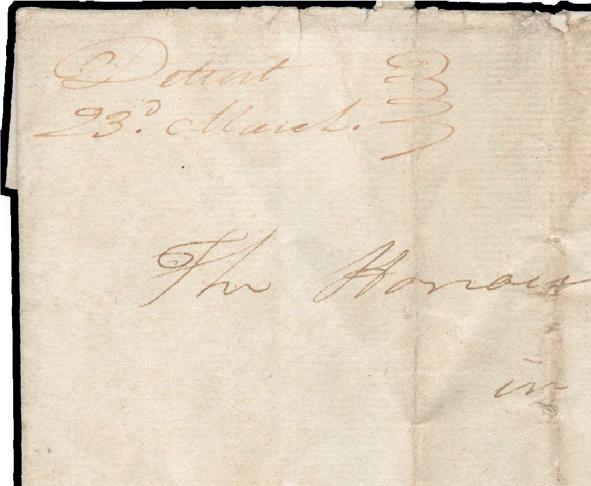 Detroit
23d. March.
The Honou
in